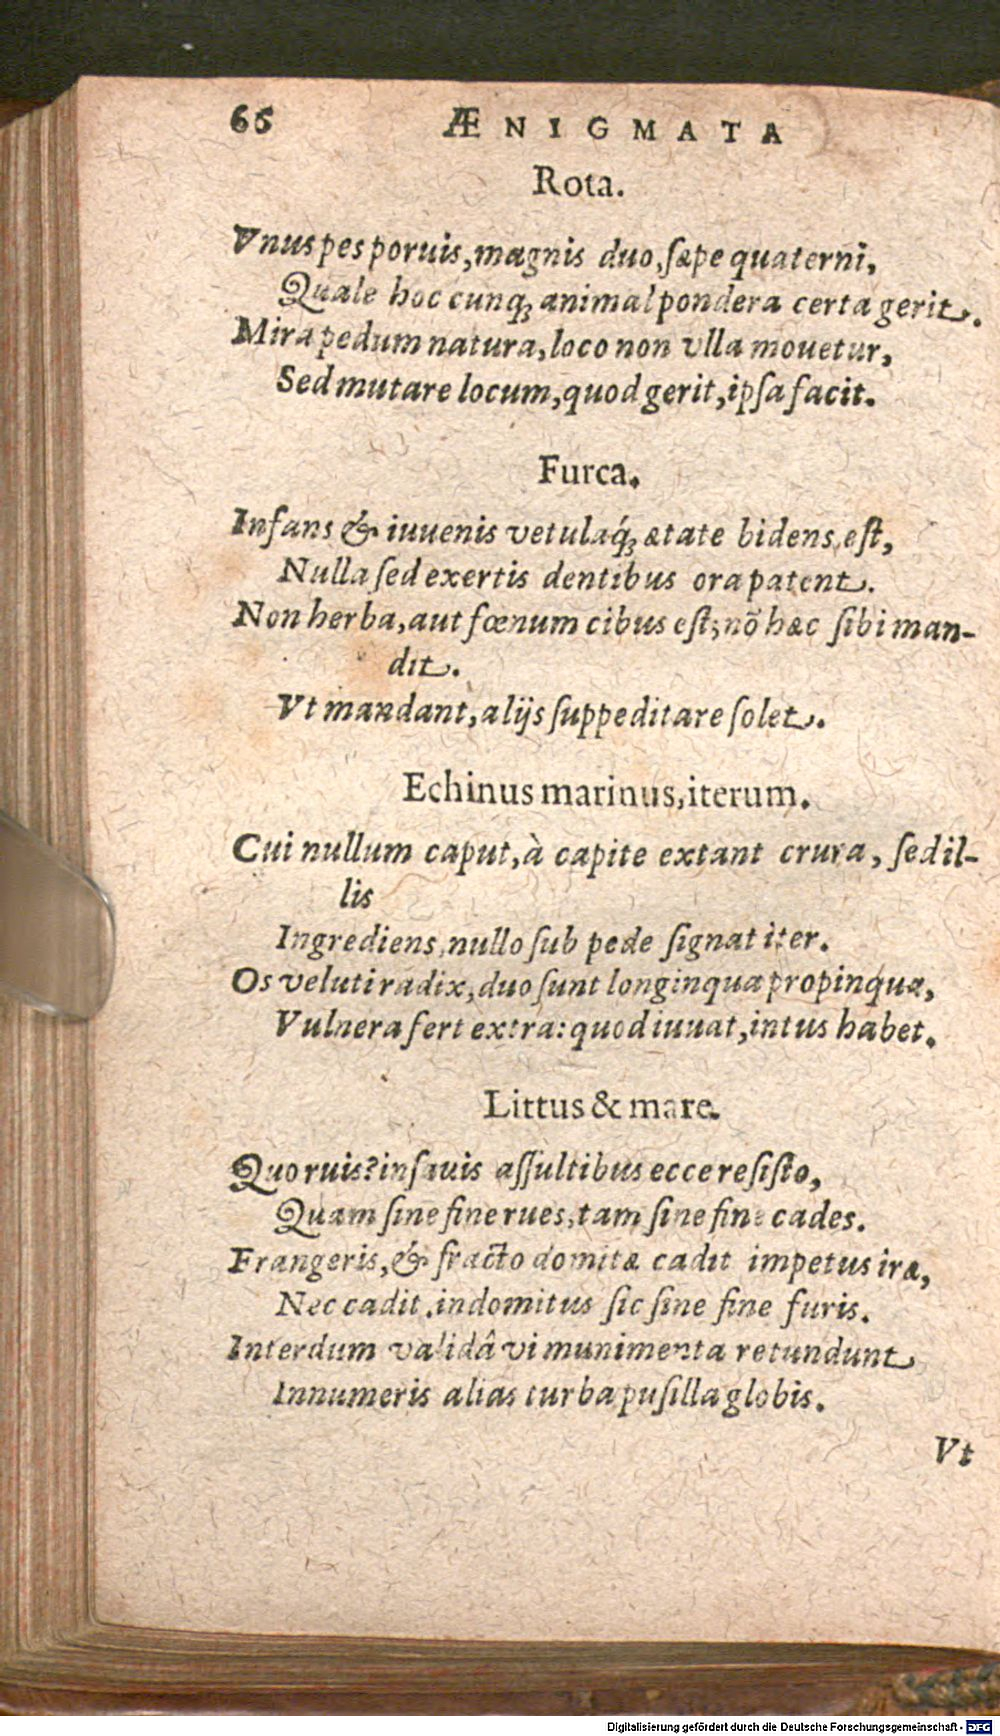 66 ÆNIGMATA
Rota.
Vnus pes poruis, magnis duo, sæpe quaterni,
Quale hoc cunqꝫ animal pondera certa gerit.
Mira pedum natura, loco non vlla mouetur,
Sed mutare locum, quod gerit, ipsa facit.
Furca.
Infans & iuuenis vetulaq́ꝫ ætate bidens est,
Nulla sed exertis dentibus ora patent.
Non herba, aut fœnum cibus est; nõ hæc sibi man-
dit.
Vt mandant, alijs suppeditare solet.
Echinus marinus, iterum.
Cui nullum caput, à capite extant crura, sed il-
lis
Ingrediens, nullo sub pede signat iter.
Os veluti radix, duo sunt longinqua propinqua,
Vulnera fert extra: quod iuuat, intus habet.
Littus & mare.
Quo ruis? insauis assultibus ecce resisto,
Quam sine fine rues, tam sine fine cades.
Frangeris, & fracto domitæ cadit impetus iræ,
Nec cadit, indomitus sic sine fine furis.
Interdum validâ vi munimenta retundunt
Innumeris alias turba pusilla globis.
Vt
Digitalisierung gefördert durch die Deutsche Forschungsgemeinschaft - DFG